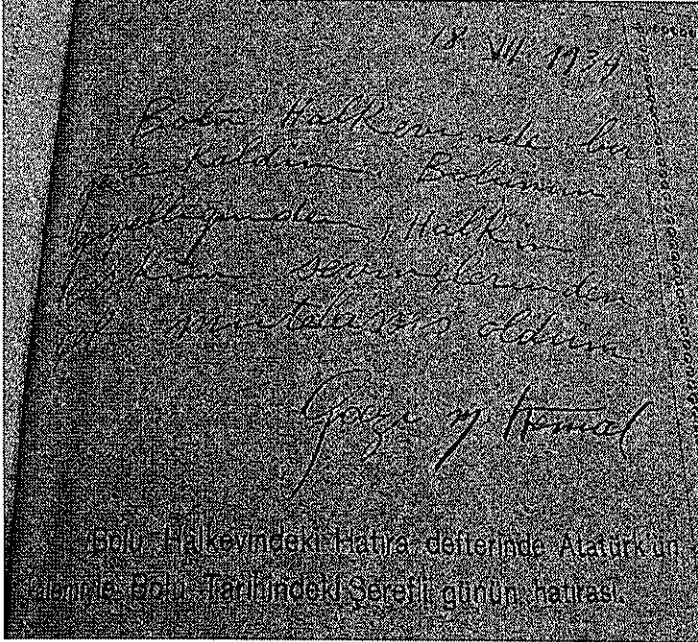 18 VII 1934
Bolu Halkevinde bu
kaldım. Bolunun
güzelliğinden, Halkın
sevinçlerinden
mütehassis oldum
Gazi M Kemal
Bolu Halkevindeki Hatıra defterinde Atatürk'ün
kalemile Bolu Tarihindeki Şerefli günün hatırası.